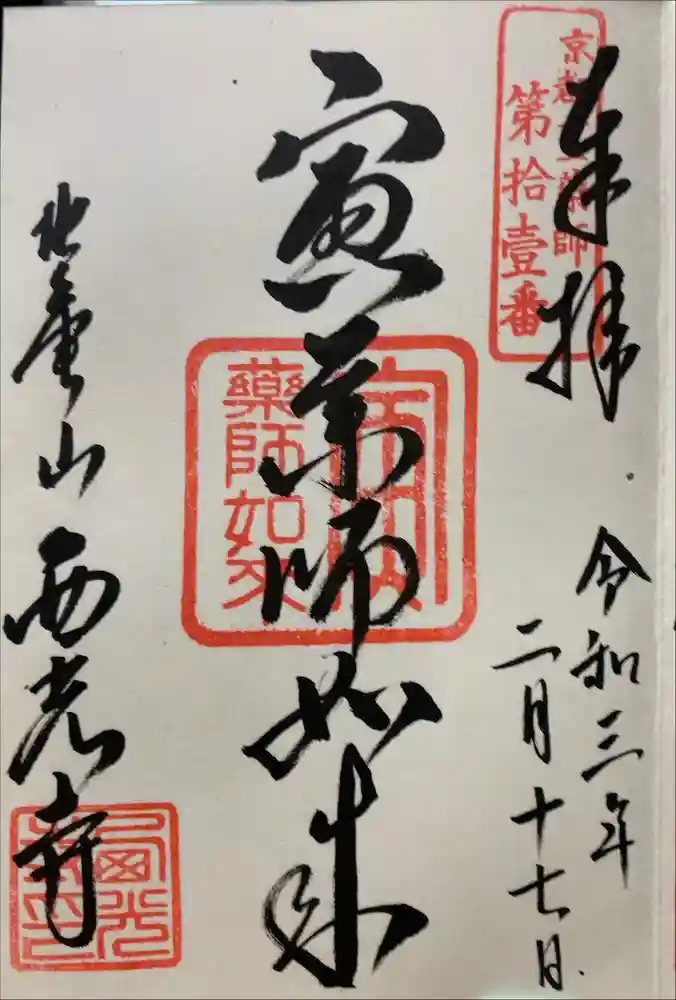 奉拝
京都十二薬師
第拾壹番
令和三年
二月十七日
寅薬師如来
寅
藥師如来
北亀山西光寺
西光
寺印